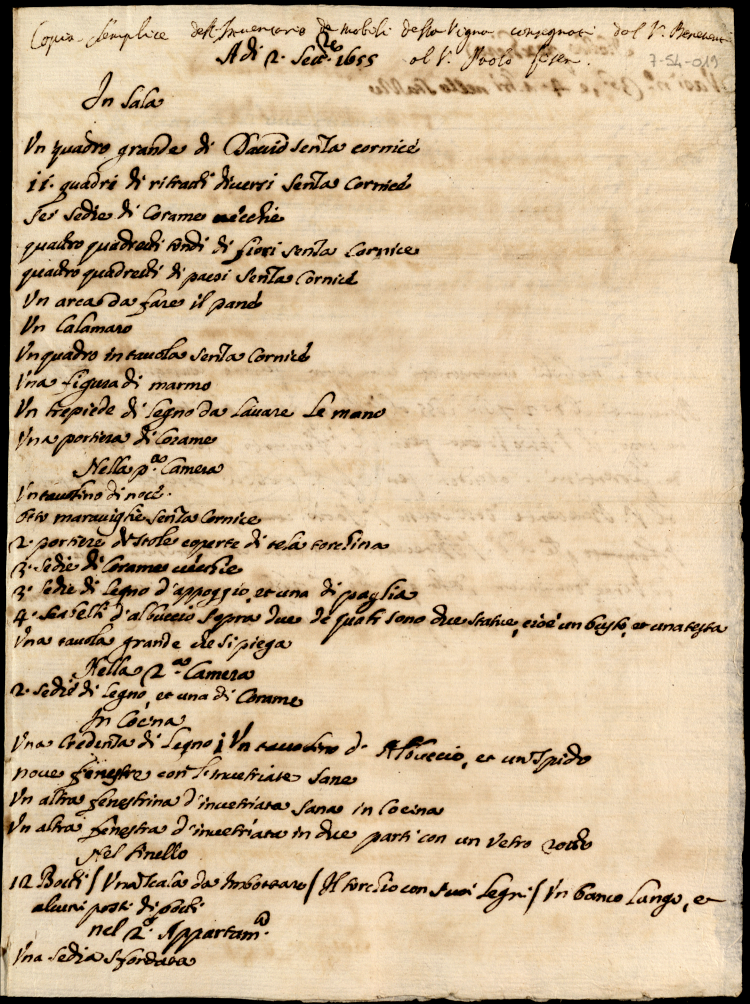 Copia semplice dell'Inventario de mobili della Vigna consegnati dal S.r Benevent
A di 2. Sett.re 1655 al S.r Paolo
7-54-019
In Sala
Un quadro grande di David senza cornice
11. quadri di ritratti diversi senza cornice
Sei sedie di Corame vecchie
quattro quadretti tondi di fiori senza Cornice
quattro quadretti di paesi senza Cornice
Un arca da fare il pane
Un Calamaro
Un quadro in tavola senza Cornice
Una figura di marmo
Un trepiede di legno da lavare le mano
Una portiera di Corame
Nella p.a Camera
Un tavolino di noce.
otto maraviglie senza Cornice
2. portiere di stole coperte di tela torchina
3. sedie di Corame vecchie
3. sedie di legno d'appoggio, et una di paglia
4. Scabelli d'albuccio sopra due de quali sono due statue, cioè un busto, et una testa
Una tavola grande che si piega
Nella 2.a Camera
2. sedie di legno, et una di Corame
In Cocina
Una Credenza di legno / Un tavolino d'Albuccio, et un spido
nove fenestre con l'invetriate sane
Un altra fenestrina d'invetriata sana in Cocina
Un altra fenestra d'invetriata in due parti con un vetro rotto
Nel tinello
12 Botti / Una scala da imbottare / Il torchio con suoi legni / Un banco lungo, et
alcuni posti di botti
nel 2.o Appartam.to
Una sedia sfondata